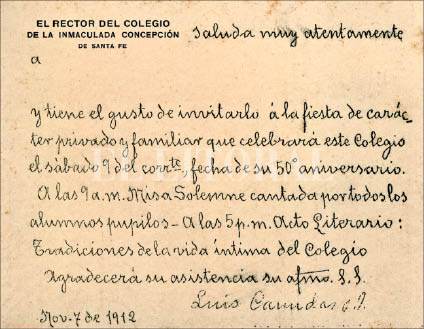 EL RECTOR DEL COLEGIO
DE LA INMACULADA CONCEPCIÓN
DE SANTA FE
saluda muy atentamente
a
y tiene el gusto de invitarlo á la fiesta de carác-
ter privado y familiar que celebrará este Colegio
el sábado 9 del corrte, fecha de su 50º aniversario.
A las 9 a.m. Misa Solemne cantada por todos los
alumnos pupilos - A las 5 p.m. Acto Literario:
Tradiciones de la vida íntima del Colegio
Agradecerá su asistencia su afmo. S. S.
Luis
Nov. 7 de 1912